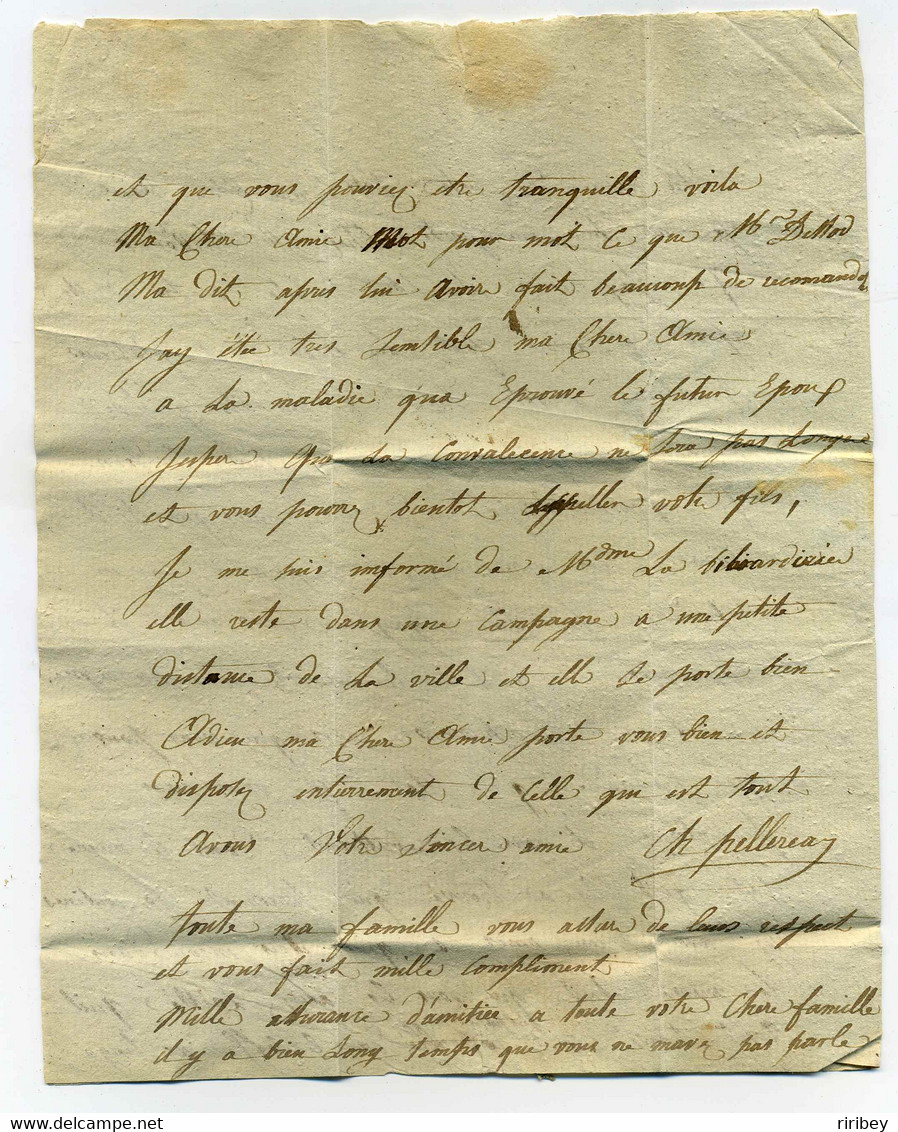 et que vous pouviez etre tranquille voila
Ma Chere Amie Mot pour mot ce que Mr
Ma dit apres lui avoire fait beaucoup de recomand
Jay étée tres sensible ma Chere Amie
a La maladie qua Eprouvé le futur Epoux
Jesper que La Convalecence ne sera pas Longue
et vous pourrez bientot Lappeller votre fils,
Je me suis informé de Mdme La
elle reste dans une Campagne a une petite
distance de La ville et elle se porte bien
Adieu ma Chere Amie porte vous bien et
disposez entierrement de Celle qui est tout
avous Votre Sincer amie Ch pellereau
toute ma famille vous assure de leurs respect
et vous fait mille Compliment
Mille assurance d'amitiée a toute votre Chere famille
il y a bien Long temps que vous ne mavez pas parle
riribey